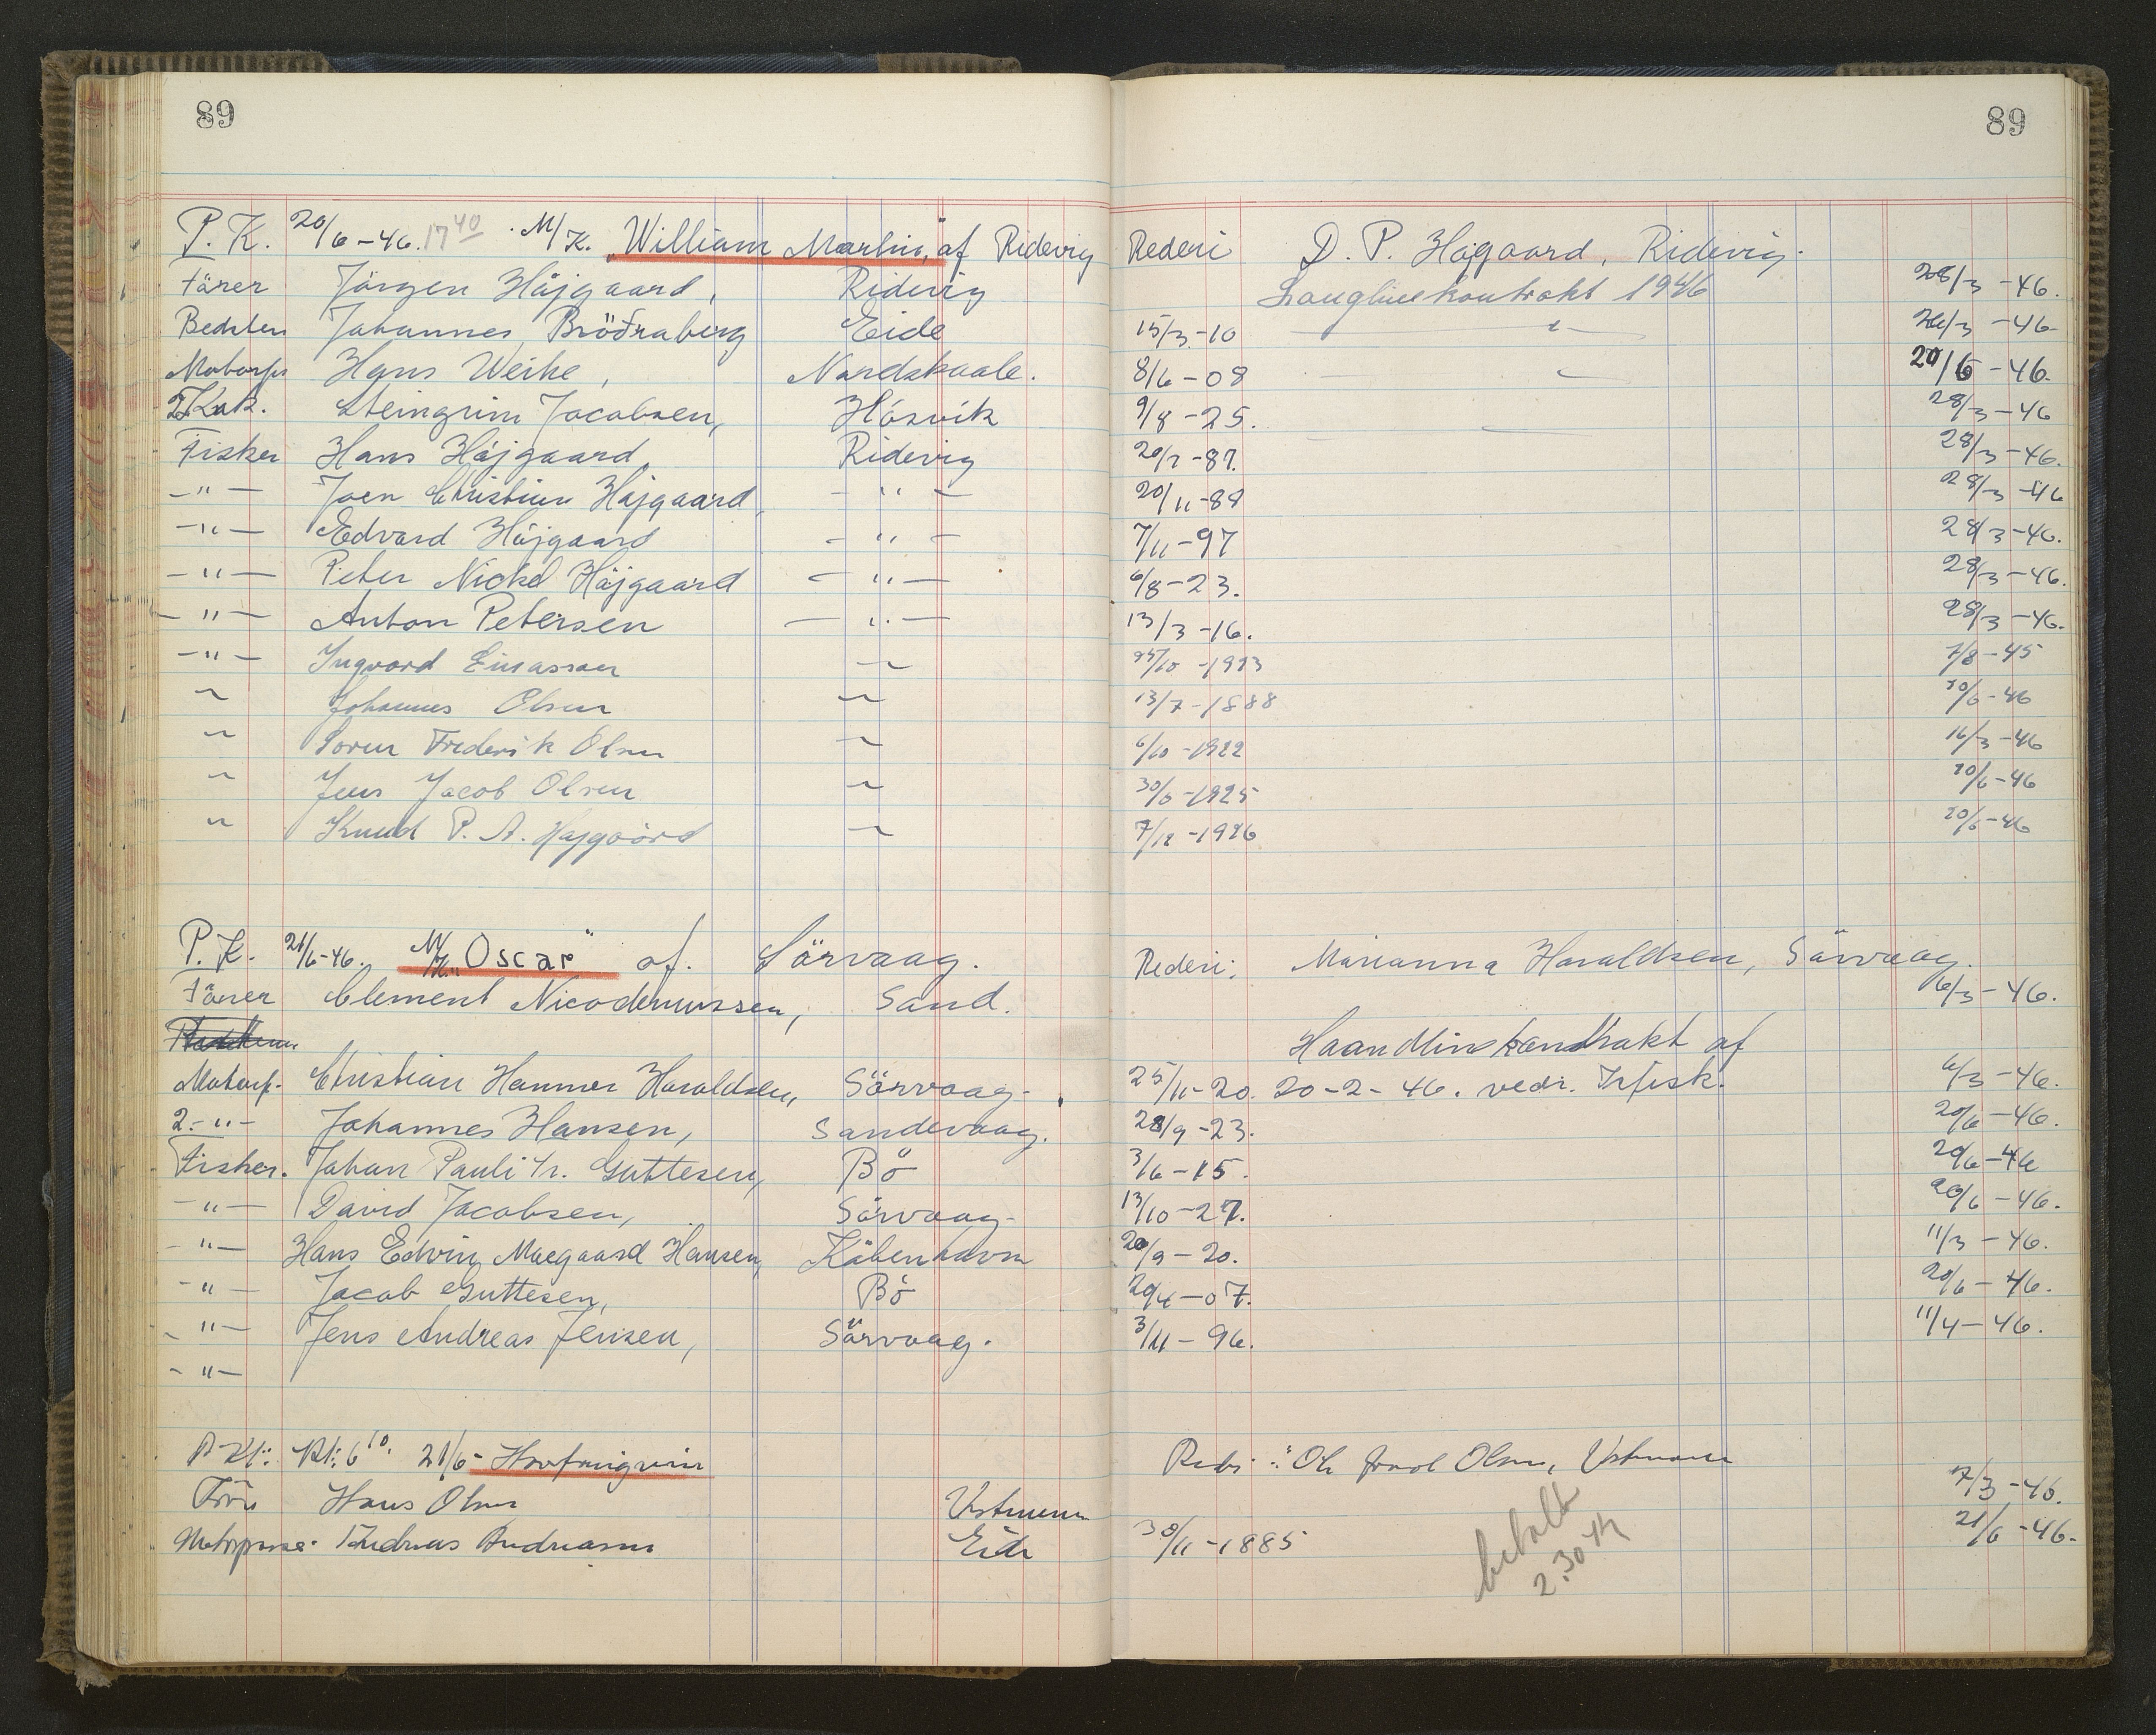 89
89
P. K. 20/6-46. 17 40 M/K. „William Martin" af Ridevig Rederi D. P. Højgaard, Ridevig.
Förer Jörgen Höjgaard, Ridevig Langlinekontrakt 1946 28/3-46.
Bedstem Johannes Bröðraberg Eide 15/3-10 -"- 26/3-46.
Motorps Hans Weihe, Nordskaale. 8/6-08 20/6-46.
Kok. Steingrim Jacobsen, Hósvik 9/8-25. 28/3-46
Fisker Hans Höjgaard, Ridevig 20/7-87. 28/3-46.
-"- Joen Christian Höjgaard, -"- 20/11-88 28/3-46
-"- Edvard Höjgaard -"- 7/11-97 28/3-46.
-"- Peter Nickl Höjgaard -"- 6/8-23. 28/3-46.
-"- Anton Petersen -"- 13/3-16. 28/3-46.
-"- Ingvard -"- 7/8-45
" Johannes Olsen " 13/7-1888 20/6-46
" Soren Frederik Olsen " 6/10-1922 16/3-46
" Jens Jacob Olsen " 30/6-1925 20/6-46
" Knud P. A. Højgaard " 7/12-1926 20/6-46
P. K. 21/6-46. M/K „Oscar" af. Sörvaag. Rederi: Marianna Haraldsen, Sörvaag.
Förer Clement Nicodemussen, Sand. 16/3-46.
Haandlinekontrakt af
Motorp. Christian Hammer Haraldsen, Sörvaag. 25/11-20. 20-2-46. vedr. Isfisk. 6/3-46.
2.-"- Johannes Hansen, Sandevaag. 28/9-23. 20/6-46.
Fisker. Johan Pauli Fr. Guttesen, Bö 3/6-15. 20/6-46
-"- David Jacobsen, Sörvaag 13/10-27. 20/6-46.
-"- Hans Edvin Maegaard Hansen, Köbenhavn 20/9-20. 11/3-46.
-"- Jacob Guttesen, Bö 29/4-07. 20/6-46.
-"- Jens Andreas Jensen, Sörvaag. 3/11-96. 11/4-46.
-"-
P. Kl: Kl: 6 10. 21/6- Rederi: Olsen, Vestmanna
Förer Hans Olsen Vestmanna 7/3-46.
Motorpasser Andreas Andreasen Eide 30/11-1885 21/6-46.
betalt
2.30